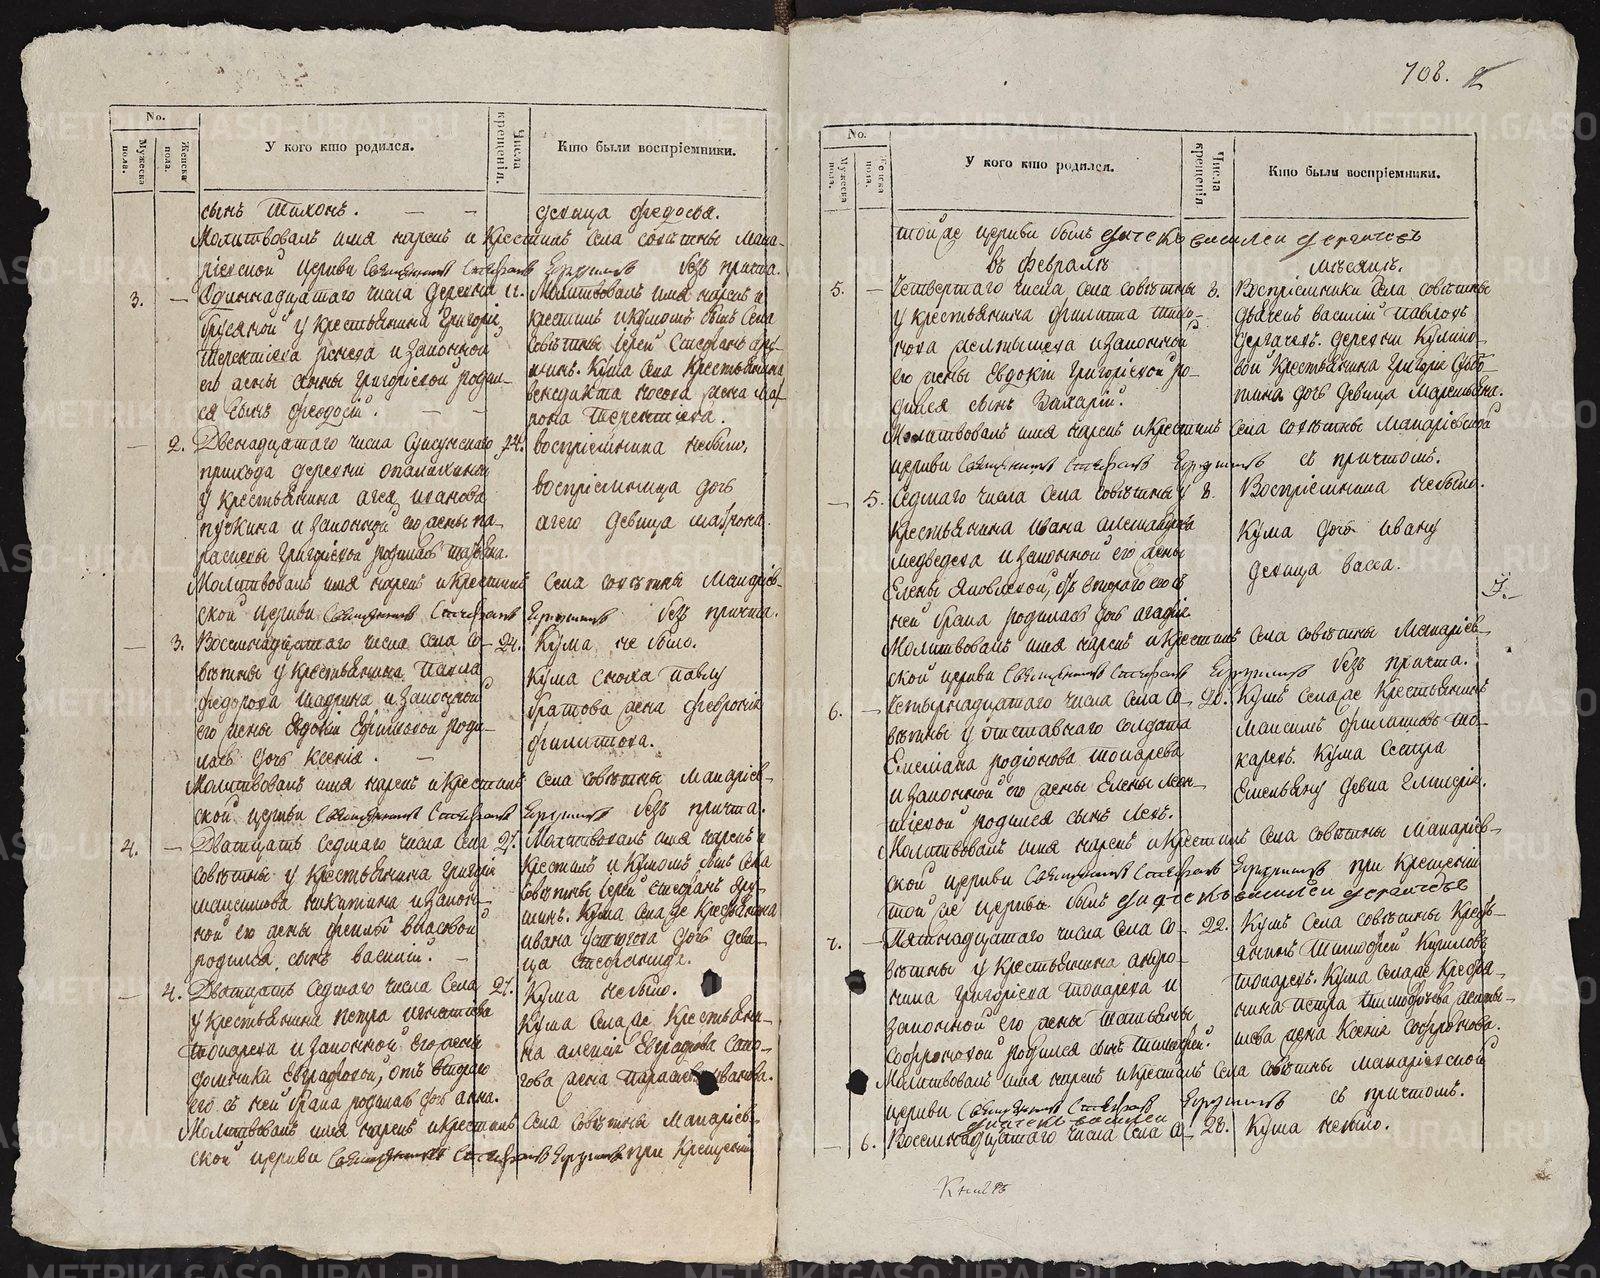 No.
Мужеска пола.
Женска пола.
У кого кто родился.
Числа крещенія.
Кто были воспріемники.
сынъ Тихонъ. — —
девица Федосья.
Молитвовалъ имя нарекъ и крестилъ села совѣтны Мака-
ріевской церкви священникъ Стефанъ безъ причта.
3. — Одиннадцатаго числа деревни
у крестьянина Григорія
и законной
его жены Анны Григоріевой роди-
ся сынъ Федосій. — —
Молитвовалъ имя нарекъ и
крестилъ и кумомъ былъ села
совѣтны іерей Стефанъ
Кума села крестьянина
жена Ма-
Терентіева.
— 2. Двенадцатаго числа
прихода деревни
у крестьянина Агея Иванова
и законной его жены Па-
Григоріевой родилась
14. воспріемника небыло.
воспріемница дочь
агего девица матрона.
Молитвовалъ имя нарекъ и крестилъ села совѣтны Макаріев-
ской церкви священникъ Стефанъ безъ причта.
— 3. Восемнадцатаго числа села со-
вѣтны у крестьянина Павла
Федорова и законной
его жены Евдокіи роди-
лась дочь Ксенія. —
24. Кума не было.
Кума сноха Павлу
братова жена Февронія
Филипова.
Молитвовалъ имя нарекъ и крестилъ села совѣтны Макаріев-
ской церкви священникъ Стефанъ безъ причта.
4. — Дватцать седмаго числа села
совѣтны у крестьянина Григорія
Максимова Никитина и закон-
ной его жены Власовой
родился сынъ Василій. —
27. Молитвовалъ имя нарекъ и
крестилъ и кумомъ былъ села
совѣтны іерей Стефанъ
Кума села же крестьянина
Ивана дочь деви-
ца Стефанида.
— 4. Дватцать седмаго числа села
у крестьянина Петра Игнатіева
Токарева и законной его жены
Евграфовой, отъ втораго
его съ ней брака родилась дочь Анна.
27. Кума небыло.
Кума села же крестьяни-
на Алексія Евграфова
жена Параскева Иванова.
Молитвовалъ имя нарекъ и крестилъ села совѣтны Макаріев-
ской церкви священникъ Стефанъ при крещеніи
108.
No.
Мужеска пола.
Женска пола.
У кого кто родился.
Числа крещенія.
Кто были воспріемники.
той же церкви былъ дьячекъ василеи дергачевъ
въ февралѣ
мѣсяцѣ.
5. — Четвертаго числа села совѣтны
у крестьянина Филиппа
и законной
его жены Евдокіи Григоріевой ро-
дился сынъ Захарій.
8. Воспріемники села совѣтны
дьячекъ Василій Павловъ
Дергачевъ. деревни
крестьянина Григорія
дочь девица Маремьяна.
Молитвовалъ имя нарекъ и крестилъ села совѣтны Макаріевской
церкви священникъ Стефанъ съ причтомъ.
— 5. Седмаго числа села совѣтны у
крестьянина Ивана Александрова
Медведева и законной его жены
Елены Яковлевой, отъ втораго его съ
ней брака родилась дочь Агафія
8. Воспріемника небыло.
Кума дочь Ивану
девица Васса.
Молитвовалъ имя нарекъ и крестилъ села совѣтны Макаріев-
ской церкви священникъ Стефанъ безъ причта.
6. — Четырнадцатаго числа села со-
вѣтны у отставнаго солдата
Емельяна Родіонова Токарева
и законной его жены Елены Леон-
тіевой родился сынъ Левъ.
20. Кумъ села же крестьянинъ
Максимъ Филиповъ То-
каревъ. Кума сестра
Емельяну девка Гликерія.
Молитвовалъ имя нарекъ и крестилъ села совѣтны Макаріев-
ской церкви священникъ Стефанъ при крещеніи
той же церкви былъ дьячекъ василеи дергачевъ
7. — Пятнадцатаго числа села со-
вѣтны у крестьянина Андро-
ника Григоріева Токарева и
законной его жены Татьяны
Софроновой родился сынъ Тимофей.
22. Кумъ села совѣтны кресть-
янинъ Тимофей Кириловъ
Токаревъ. Кума села же крестья-
нина Петра Тимофеева
жена Ксенія Софронова.
Молитвовалъ имя нарекъ и крестилъ села совѣтны Макаріевской
церкви священникъ Стефанъ съ причтомъ.
дьячекъ василеи
— 6. Восемнадцатаго числа села со-
28. Кума небыло.
METRIKI.GASO-URAL.RU